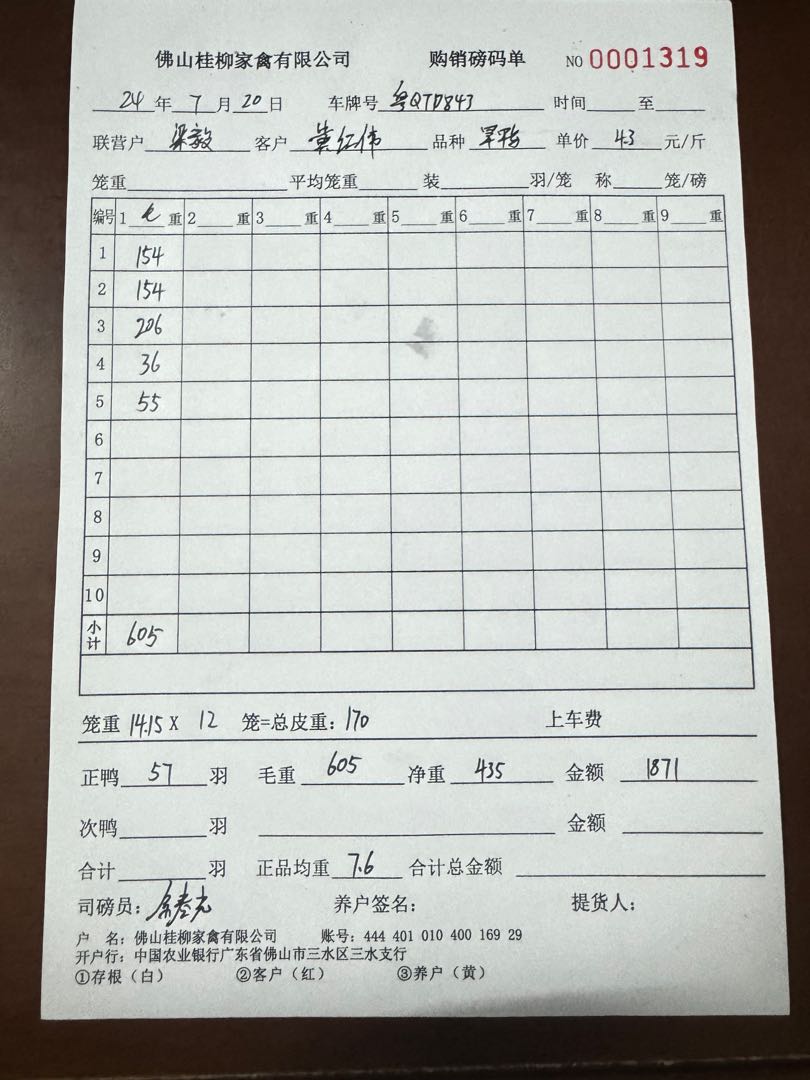 佛山桂柳家禽有限公司 购销磅码单 NO 0001319
24年7月20日 车牌号 粤QTD843 时间 至
联营户 梁敏 客户 黄红伟 品种 单价 4.3 元/斤
笼重 平均笼重 装 羽/笼 称 笼/磅
编号 1 重 2 重 3 重 4 重 5 重 6 重 7 重 8 重 9 重
1 154
2 154
3 206
4 36
5 55
6
7
8
9
10
小计 605
笼重 14.15 X 12 笼=总皮重: 170 上车费
正鸭 57 羽 毛重 605 净重 435 金额 1871
次鸭 羽 金额
合计 羽 正品均重 7.6 合计总金额
司磅员: 养户签名: 提货人:
户 名: 佛山桂柳家禽有限公司 账号: 444 401 010 400 169 29
开户行: 中国农业银行广东省佛山市三水区三水支行
①存根（白） ②客户（红） ③养户（黄）